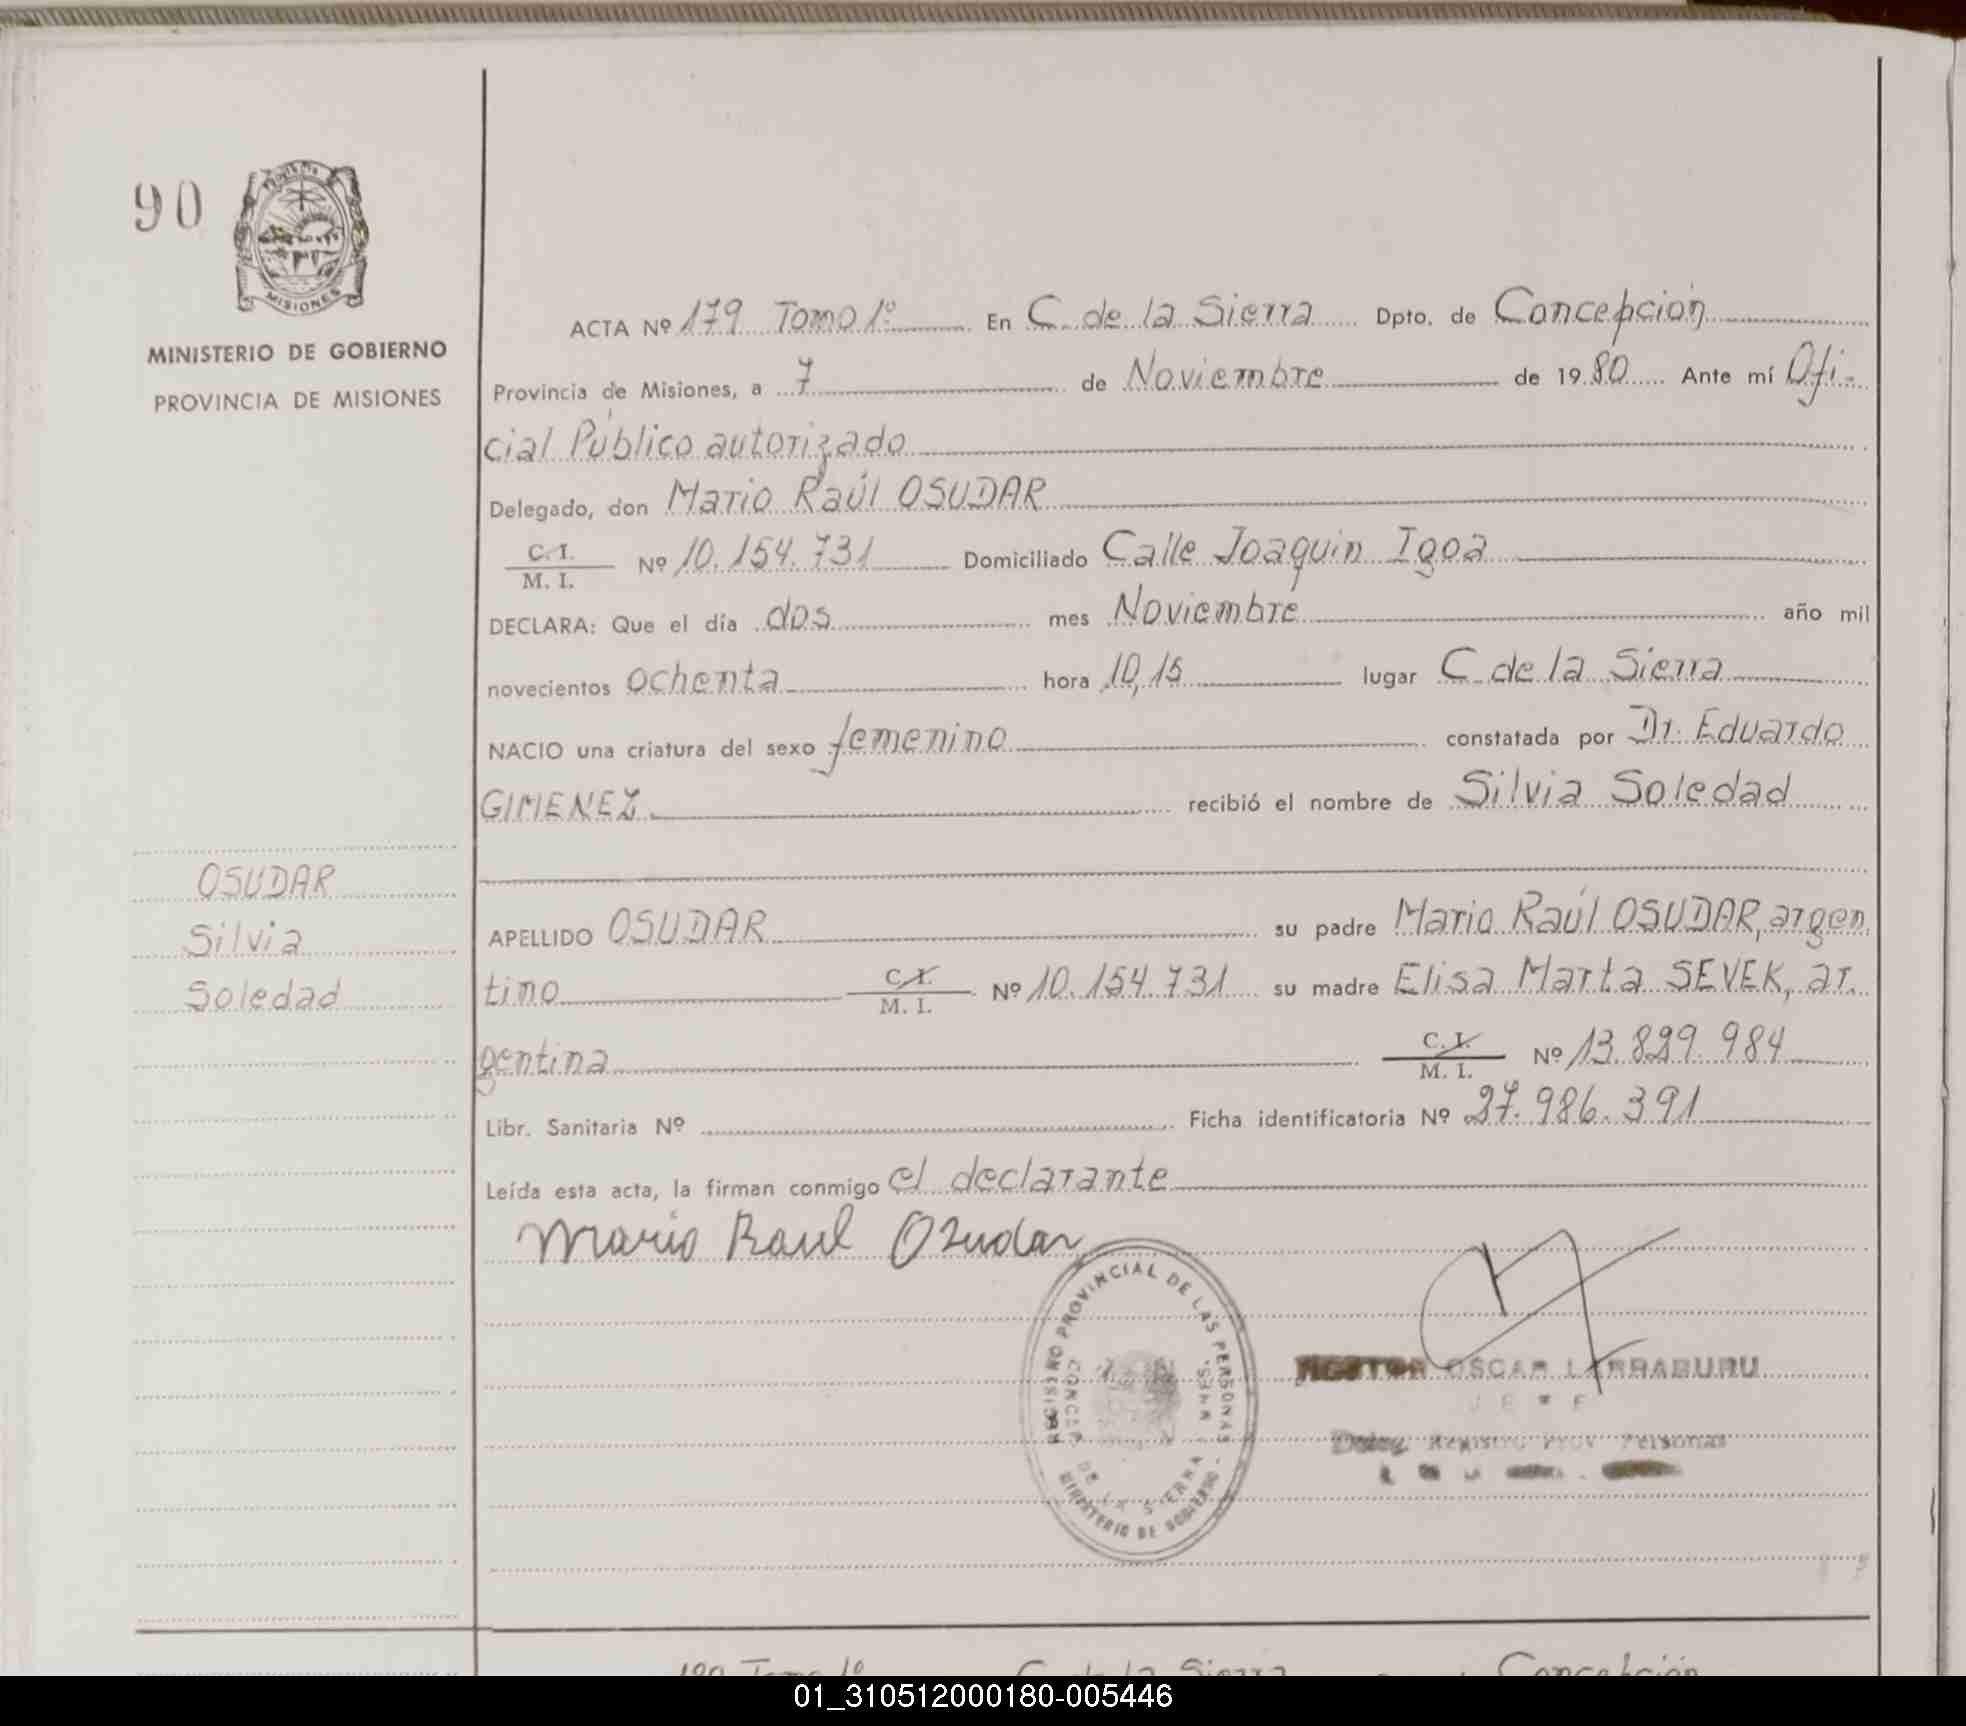 90
MISIONES
MINISTERIO DE GOBIERNO
PROVINCIA DE MISIONES
ACTA Nº 179 Tomo 1º En C. de la Sierra Dpto. de Concepción
Provincia de Misiones, a 7 de Noviembre de 1980 Ante mí Ofi-
cial Público autorizado
Delegado, don Mario Raúl OSUDAR
C.I.
M. I. Nº 10.154.731 Domiciliado Calle Joaquin Igoa
DECLARA: Que el día dos mes Noviembre año mil
novecientos ochenta hora 10,15 lugar C. de la Sierra
NACIO una criatura del sexo femenino constatada por Dr. Eduardo
GIMENEZ recibió el nombre de Silvia Soledad
OSUDAR
Silvia
Soledad
APELLIDO OSUDAR su padre Mario Raúl OSUDAR, argen
tino C.I. M. I. Nº 10.154.731 su madre Elisa Marta SEVEK, ar.
gentina C.I. M. I. Nº 13.829.984
Libr. Sanitaria Nº Ficha identificatoria Nº 27.986.391
Leída esta acta, la firman conmigo el declarante
Mario Raul Osudar
REGISTRO PROVINCIAL DE LAS PERSONAS
CONCEP. DE LA SIERRA MNES.
MINISTERIO DE GOBIERNO
NESTOR OSCAR LARRABURU
JEFE
Registro Prov Personas
Tomo 1º C. de la Sierra Concepción
01_310512000180-005446